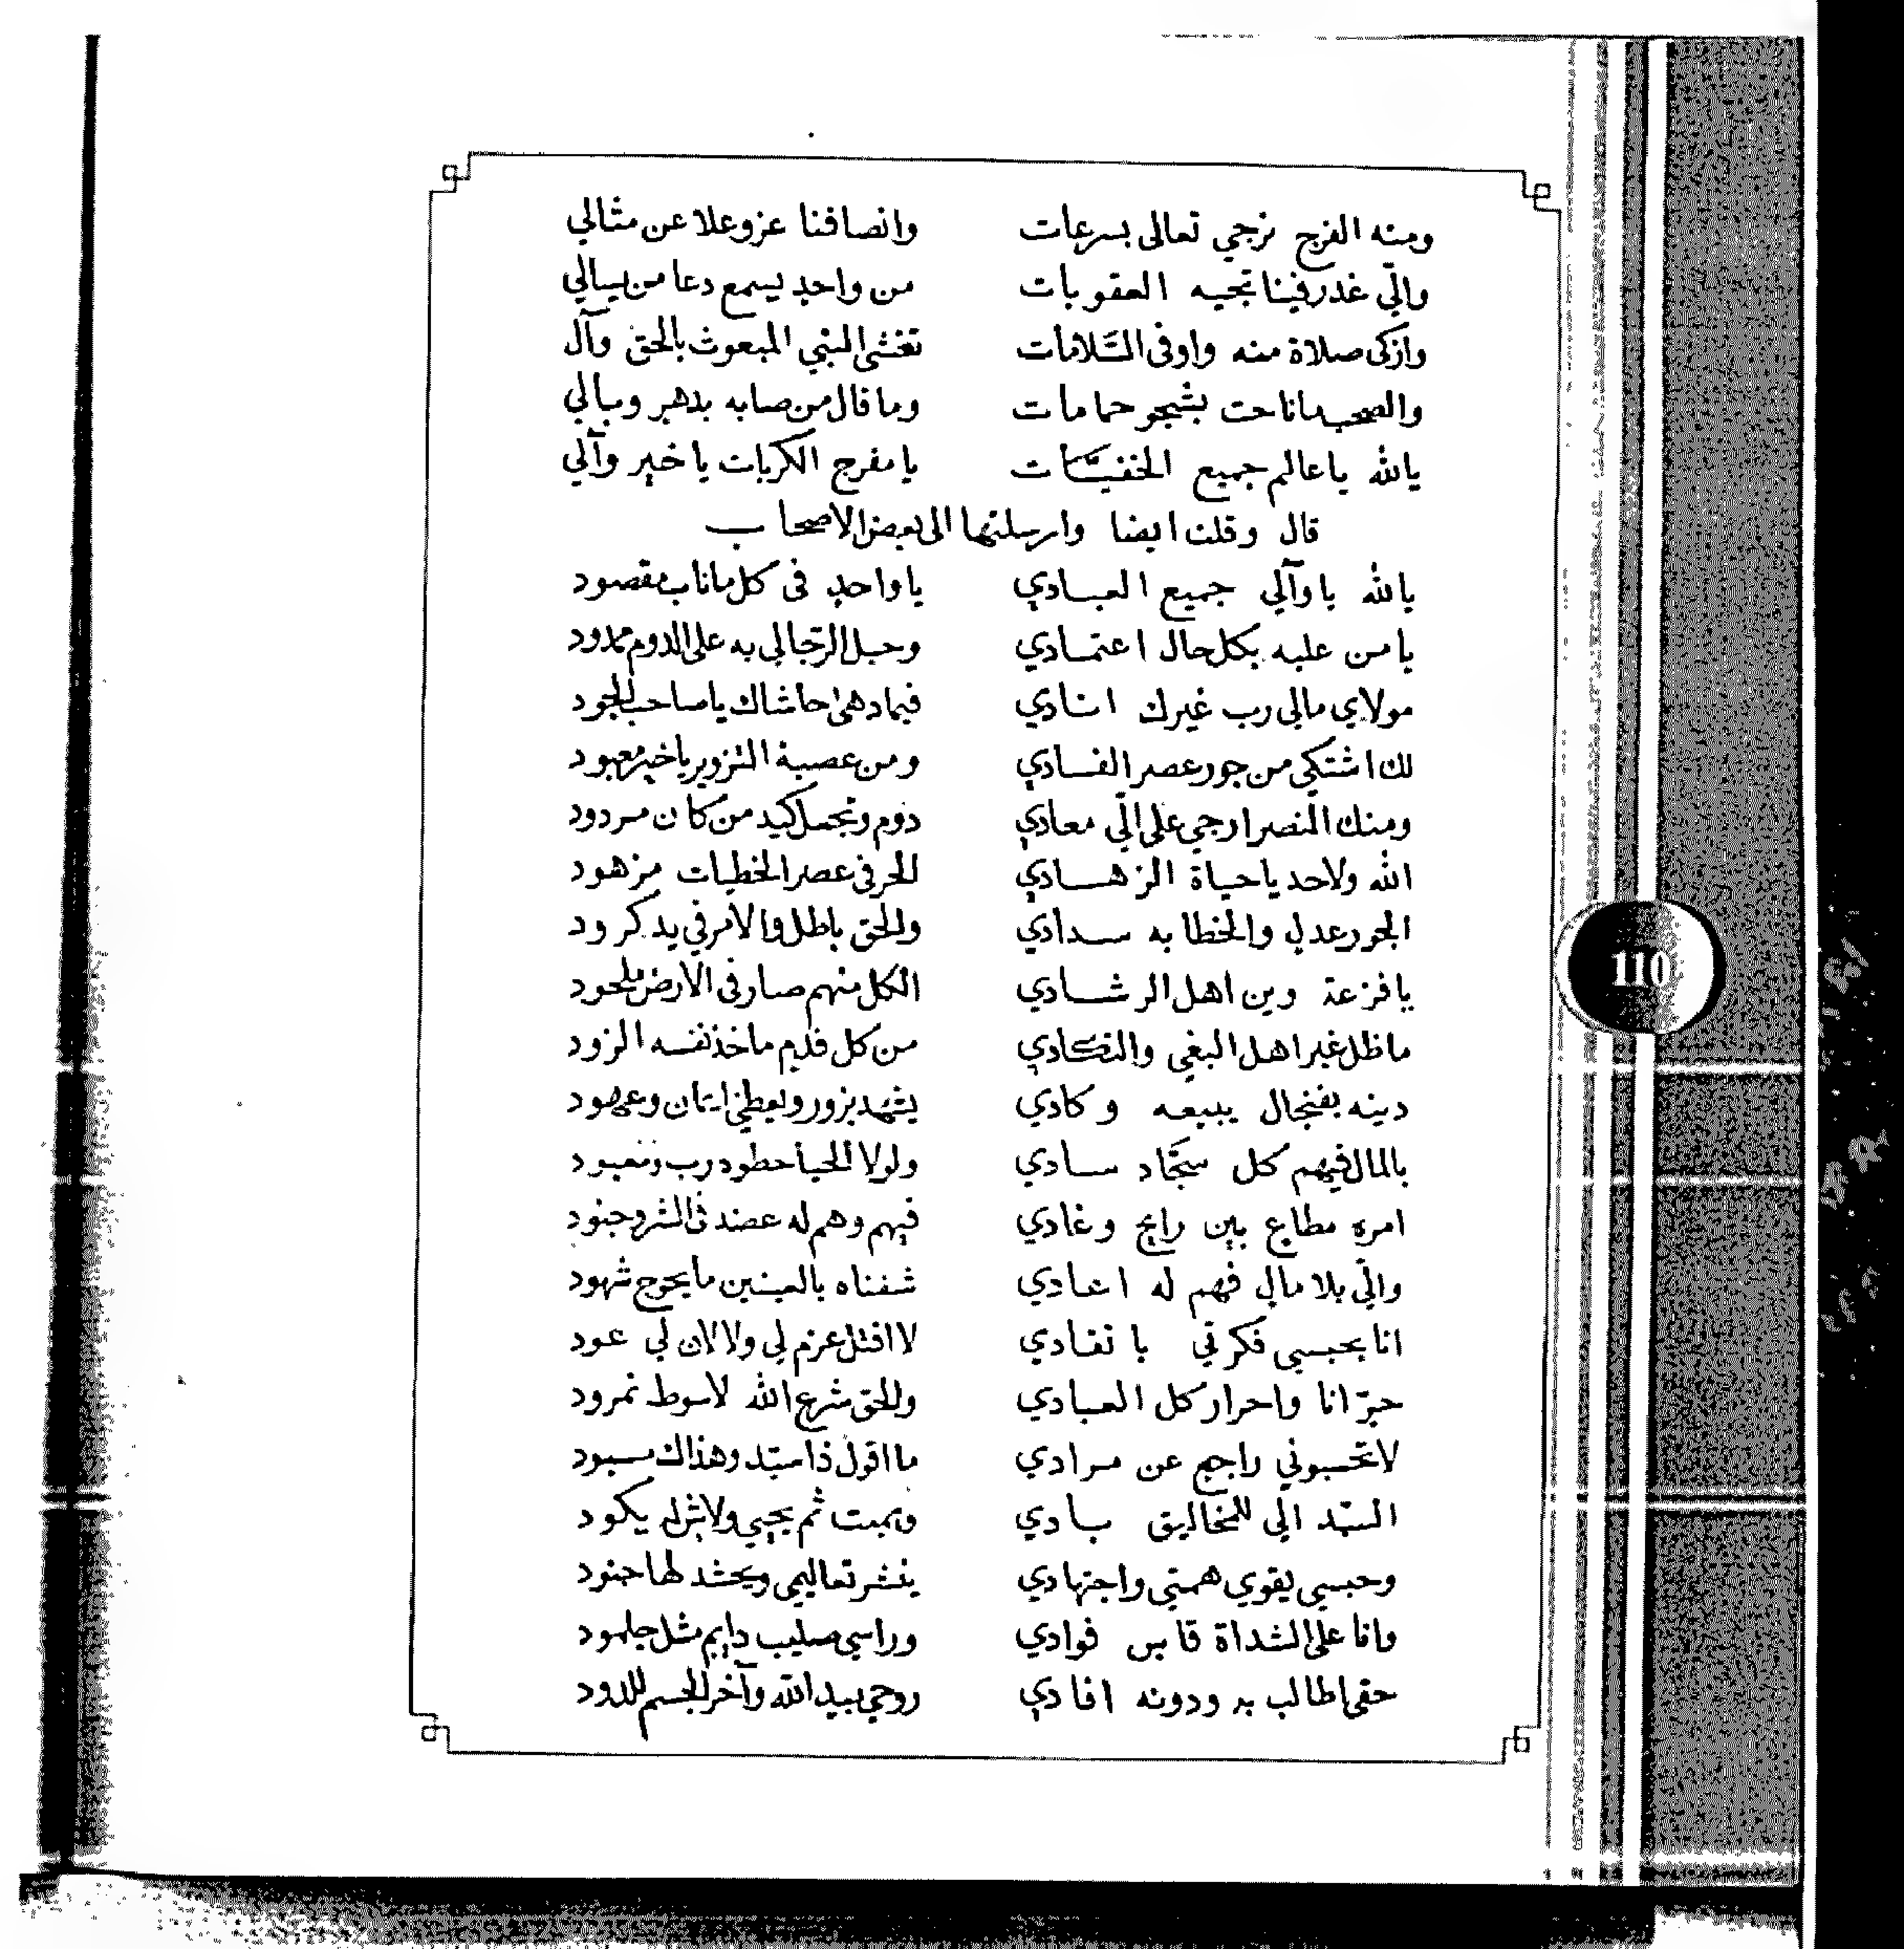 ومنه الفرج نرجي تعالى بسرعات وانصافنا عز وعلا عن مثالي
والّي غدر فينا تجيه العقوبات من واحدٍ يسمع دعا من يسالي
وازكى صلاة منه واوفى السَّلامات تغشى النبي المبعوث بالحق وآل
والصحب ما ناحت بشجو حمامات وما قال من صابه بدهر وبالي
يالله يا عالم جميع الخفيّات يا مفرج الكربات يا خير وآلي
قال وقلت ايضا وارسلتها الى بعض الاصحاب
يالله يا وآلي جميع العبادي يا واحدٍ في كل ما ناب مقصود
يا من عليه بكل حال اعتمادي وحبل الرّجا لي به على الدوم ممدود
مولاي مالي رب غيرك انادي فيما دهى حاشاك يا صاحب الجود
لك اشتكي من جور عصر الفسادي ومن عصبة التزوير يا خير معبود
ومنك النصر ارجي على الّي معادي دوم وتجعل كيد من كان مردود
الله ولاحد يا حياة الزهادي للحر في عصر الخطيات مزهود
الجور عدلٍ والخطا به سدادي والحق باطل والامر في يد كرود
يا فزعة وين اهل الرشادي الكل منهم صار في الارض ملحود
ما ظل غير اهل البغي والنكادي من كل فدم ماخذ نفسه الزود
دينه بفنجال يبيعه وكادي يشهد بزور ويعطي ايمان وعهود
بالمال فيهم كل سجّاد سادي ولولا الحيا حطوه رب ومعبود
امره مطاع بين رايح وغادي فيهم وهم له عضد في الشر وجنود
والّي بلا مالٍ فهم له اعادي شفناه بالعينين ما يحوج شهود
انا بحبسي فكرتي با نفادي لا افتل عزم لي ولا لان لي عود
حرّ انا واحرار كل العبادي وللحق شرع الله لا سوط نمرود
لا تحسبوني راجع عن مرادي ما اقول ذا سيّد وهذاك مسيود
السيّد الّي للمخاليق بادي ويميت ثم يحيي ولا شٍ له يكود
وحبسي يقوي همتي واجتهادي ينشر تعاليمي ويحشد لها جنود
وانا على الشداة قاسٍ فوادي وراسي صليب دايم مثل جلمود
حقي اطالب به ودونه افادي روحي بيد الله وآخر الجسم للدود
110